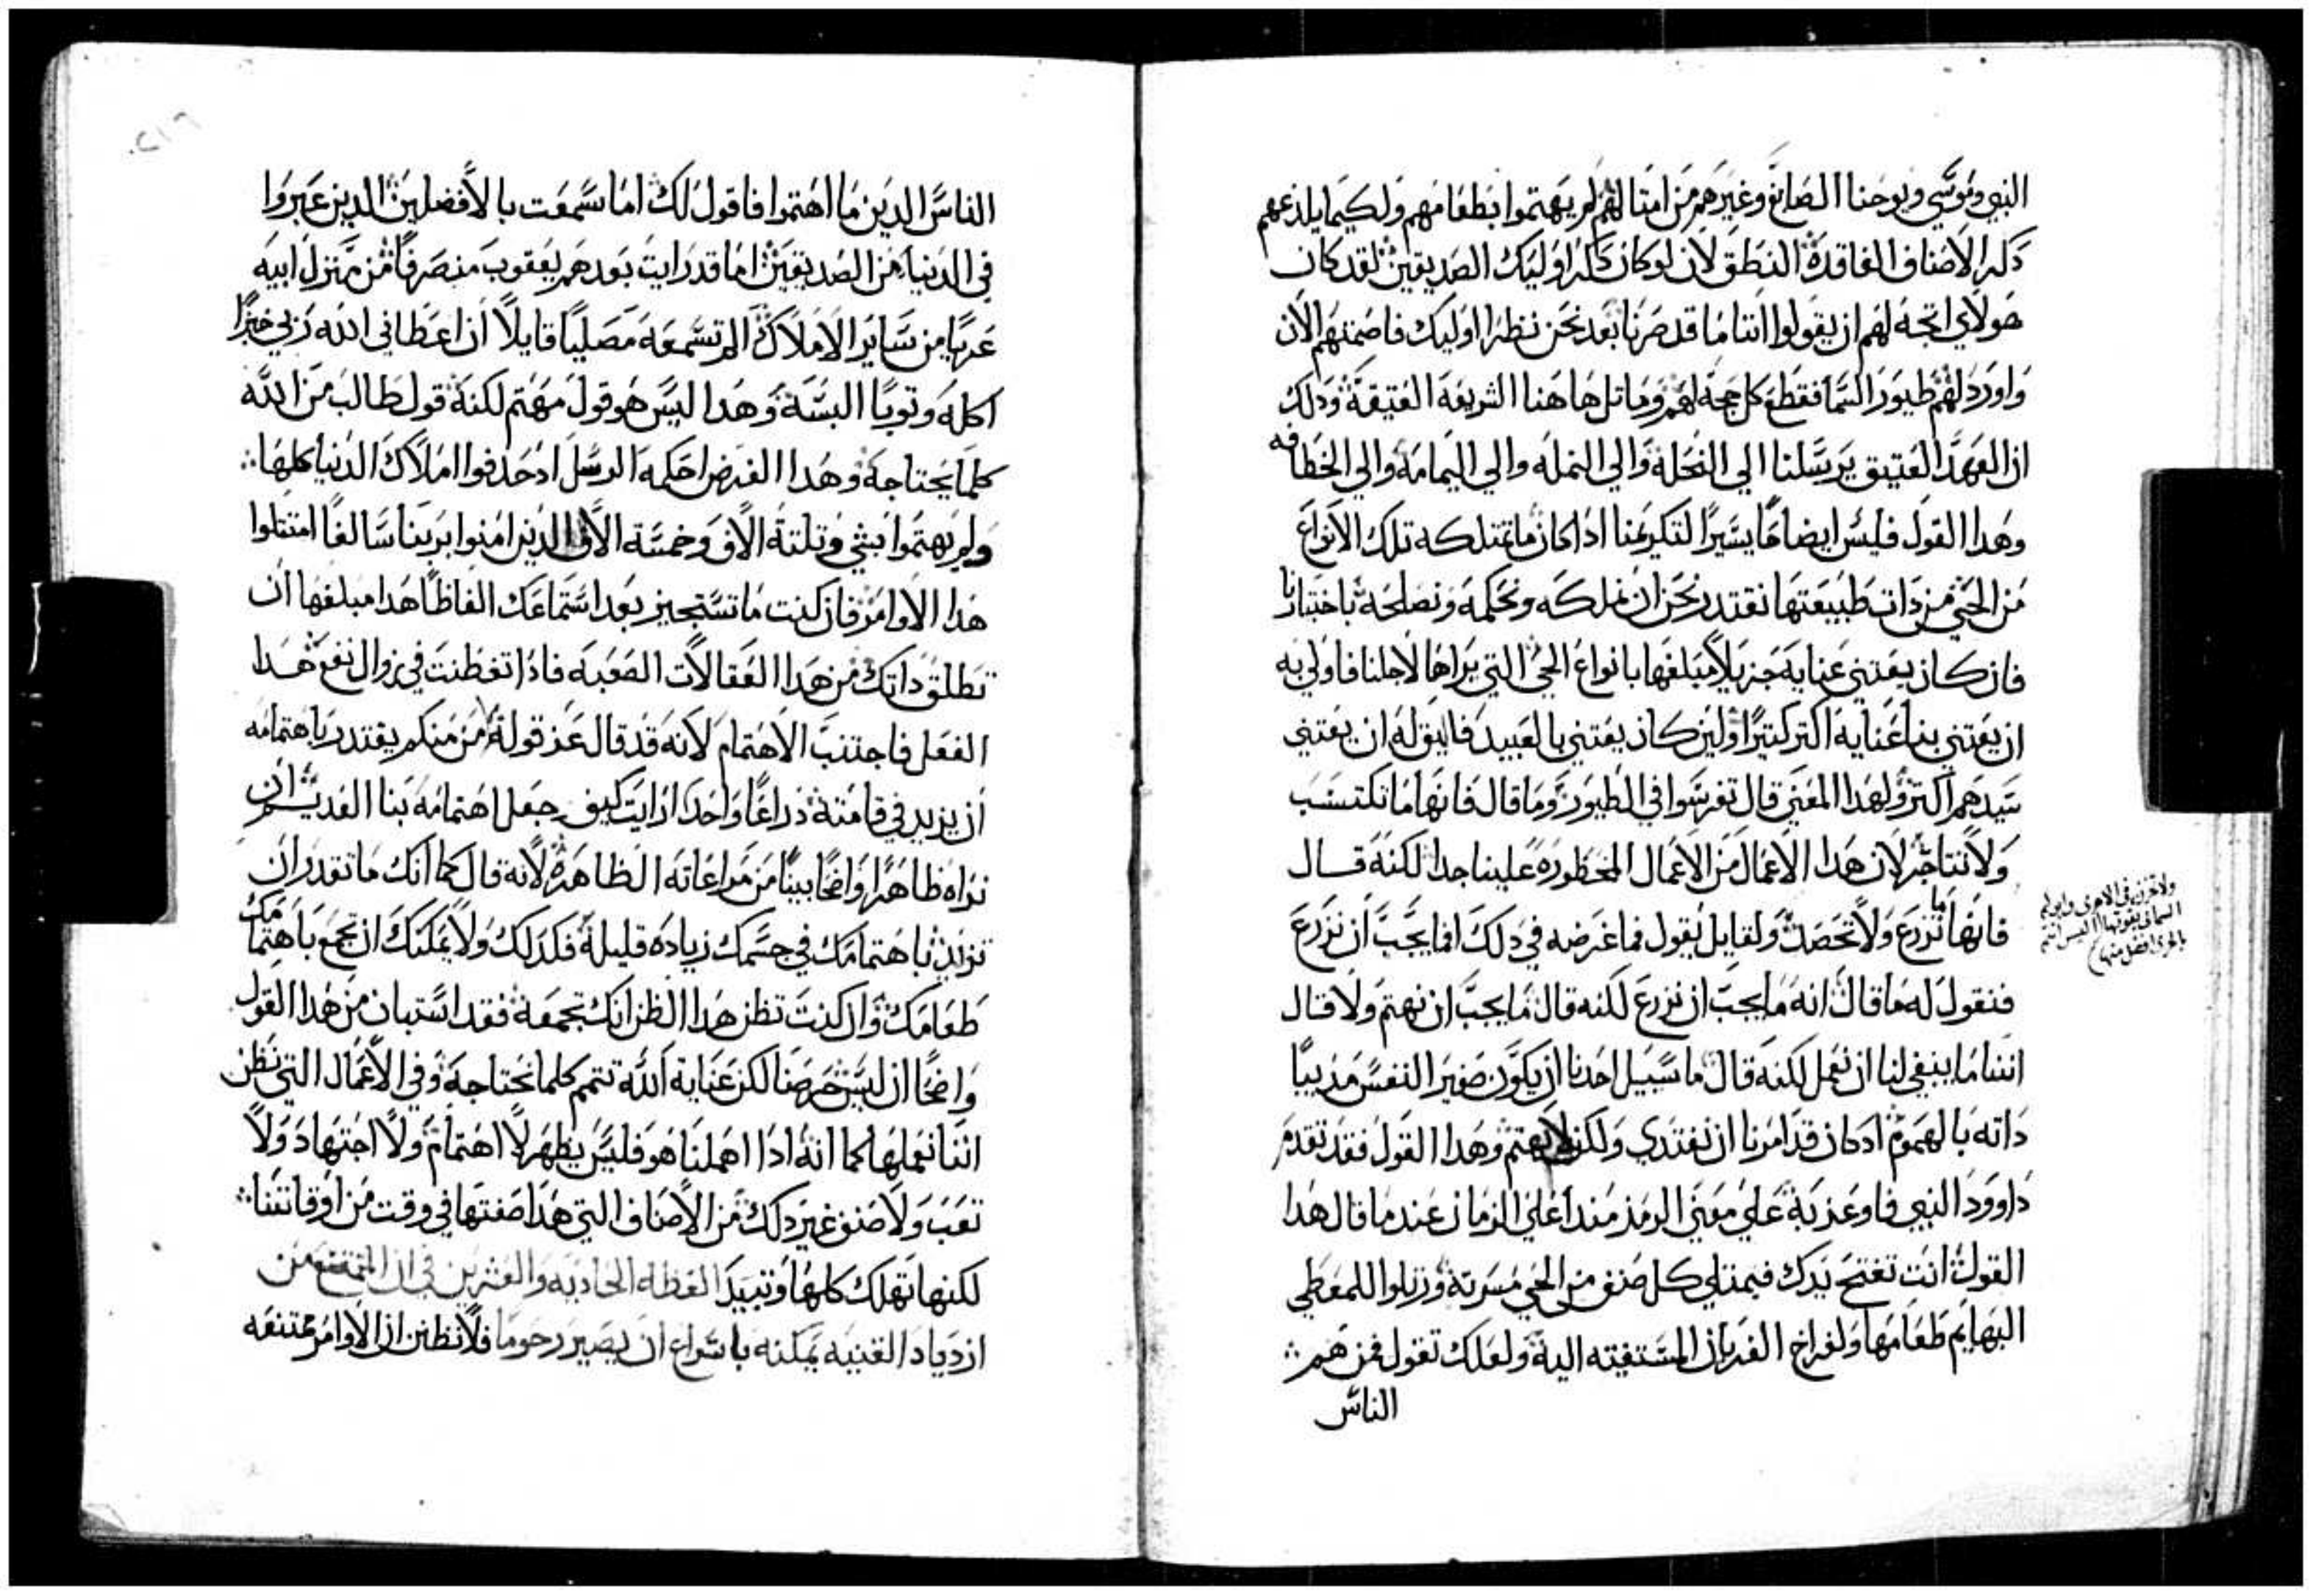 النبي وموسي ويوحنا الصابغ وغيرهم من امتالهم لم يهتموا بطعامهم ولكيما يلذعهم
ذكر الاصناف الفاقدة النطق لان لو كان ذكر اوليك الصديقين لقد كان
هولاي اتجه لهم ان يقولوا اننا ما قد صرنا بعد نحن نظرا اوليك فاصمتهم الان
واورد لهم طيور السما فقطع كل حجه لهم وماتل هاهنا الشريعه العتيقة وذلك
ان العهد العتيق يرسلنا الي النحلة والي النمله والي اليمامه والي الخطافه
وهدا القول فليس ايضاً يسيراً لتكريمنا اداكان ما تمتلكه تلك الانواع
من الحي من دات طبيعتها نقتدر نحن ان نملكه ونحكمه ونصلحه باختيارنا
فان كان يعتني عنايه جزيلاً مبلغها بانواع الحي التي يراها لاجلنا فاولي به
ان يعتني بنا عنايه اكتر كتيرا ولين كان يعتني بالعبيد فاليق له ان يعتني
سيدهم اكتر ولهدا المعني قال تفرسوا في الطيور وما قال فانها ما تكتسب
ولا تتاجر لان هدا الاعمال من الاعمال المحظوره علينا جدا لكنه قال
فانها ما تزرع ولا تحصد ولقايل يقول فما غرضه في دلك افما يجب ان نزرع
فنقول له ما قال انه ما يجب ان نزرع لكنه قال ما يجب ان نهتم ولا قال
اننا ما ينبغي لنا ان نعمل لكنه قال ما سبيل احدنا ان يكون صغير النفس مديباً
داته بالهموم ادكان قد امرنا ان نغتدي ولكن لا نهتم وهدا القول فقد تقدم
داوود النبي فاوعز به علي معني الرمز مند اعلي الزمان عندما قال هدا
القول انت تفتح يدك فيمتلي كل صنف من الحي مسرته ورتلوا للمعطي
البهايم طعامها ولفراخ الغربان المستغيته اليه ولعلك تقول فمن هم
الناس
الناس الدين ما اهتموا فاقول لك اما سمعت بالافضلين الدين عبروا
في الدنيا من الصديقين اما قد رايت بعدهم يعقوب منصرفاً من منزل ابيه
عريا من ساير الاملاك الم تسمعه مصلياً قايلاً ان اعطاني الله ربي خبزاً
اكله وتوبا البسه وهدا ليس هو قول مهتم لكنه قول طالب من الله
كلما يحتاجه وهدا الغرض احكمه الرسل ادحدفوا املاك الدنيا كلها
ولم يهتموا بشي وتلتة الاف وخمسة الاف الدين امنوا بربنا سالفا امتتلوا
هدا الاوامر فان كنت ما تستجيز بعد استماعك الفاظاً هدا مبلغها ان
تطلق داتك من هدا العقالات الصعبه فادا تفطنت في زوال نفع هدا
الفعل فاجتنب الاهتمام لانه قد قال عز قوله من منكم يقتدر باهتمامه
ان يزيد في قامته دراعاً واحدا ارايت كيف جعل اهتمامه بنا العديم ان
نراه ظاهراً واضحاً بيناً من مراعاته الظاهرة لانه قال كما انك ما تقدر ان
تزيد باهتمامك في جسمك زياده قليلة فكدلك ولا يمكنك ان تجمع باهتمامك
طعامك وان كنت تظن هدا الظن انك تجمعه فقد استبان من هدا القول
واضحاً ان ليس حرصنا لكن عناية الله تتمم كلما نحتاجه وفي الاعمال التي نظن
اننا نعملها كما انه ادا اهملنا هو فليس يظهر لا اهتمام ولا اجتهاد ولا
تعب ولا صنف غير دلك من الاصناف التي هدا صفتها في وقت من اوقاتنا
لكنها تهلك كلها وتبيد العظه الحاديه والعشرين في ان الممتنع من
ازدياد القنيه يمكنه باسراع ان يصير رحوما فلا نظنن ان الاوامر ممتنعه